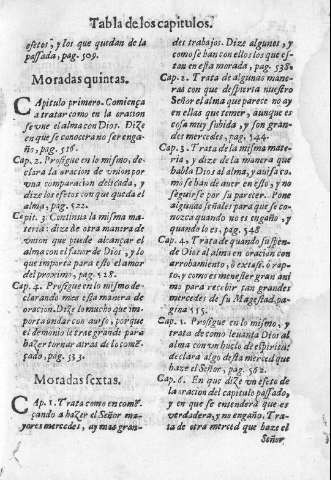 Tabla de los capitulos.
efetos, y los que quedan de la
passada, pag. 509.
Moradas quintas.
CApitulo primero. Comiença
a tratar como en la oracion
se vne el alma con Dios. Dize
en que se conocera no ser enga-
ño, pag. 516.
Cap. 2. Prosigue en lo mismo, de
clara la oracion de vnion por
vna comparacion delicada, y
dize los efetos con que queda el
alma, pag. 522.
Capit. 3. Continua la misma ma
teria: dize de otra manera de
vnion que puede alcançar el
alma con el fauor de Dios, y lo
que importa para esto el amor
del proximo, pag. 528.
Cap. 4. Prosigue en lo mismo de
clarando mas esta manera de
oracion. Dize lo mucho que im-
porta andar con auiso, porque
el demonio le trae grande para
hazer tornar atras de lo comē-
çado, pag. 533.
Moradas sextas.
CAp. 1. Trata como en comē-
çando a hazer el Señor ma-
yores mercedes, ay mas gran-
des trabajos. Dize algunos, y
como se han con ellos los que es-
ton en esta morada, pag. 538.
Cap. 2. Trata de algunas mane-
ras con que despierta nuestro
Señor el alma que parece no ay
en ellas que temer, aunque es
cosa muy subida, y son gran-
des mercedes, pag. 544.
Cap. 3. Trata de la misma mate-
ria, y dize de la manera que
habla Dios al alma, y auisa co-
mo se han de auer en esto, y no
seguirse por su parecer. Pone
algunas señales para que se co-
nozca quando no es engaño, y
quando lo es, pag. 548
Cap. 4. Trata de quando suspen-
de Dios al alma en oracion con
arrobamiento, ò extasi, ò rap-
to, y como es menester gran ani
mo para recibir tan grandes
mercedes de su Magestad. pa-
gina 555.
Cap. 5. Prosigue en lo mismo, y
trata de como leuanta Dios al
alma con vn buelo de espiritu:
declara algo desta merced que
haze el Señor, pag. 562.
Cap. 6. En que dize vn efeto de
la oracion del capitulo passado,
y en que se entenderà que es
verdadera, y no engaño. Tra-
ta de otra merced que haze el
Señor,